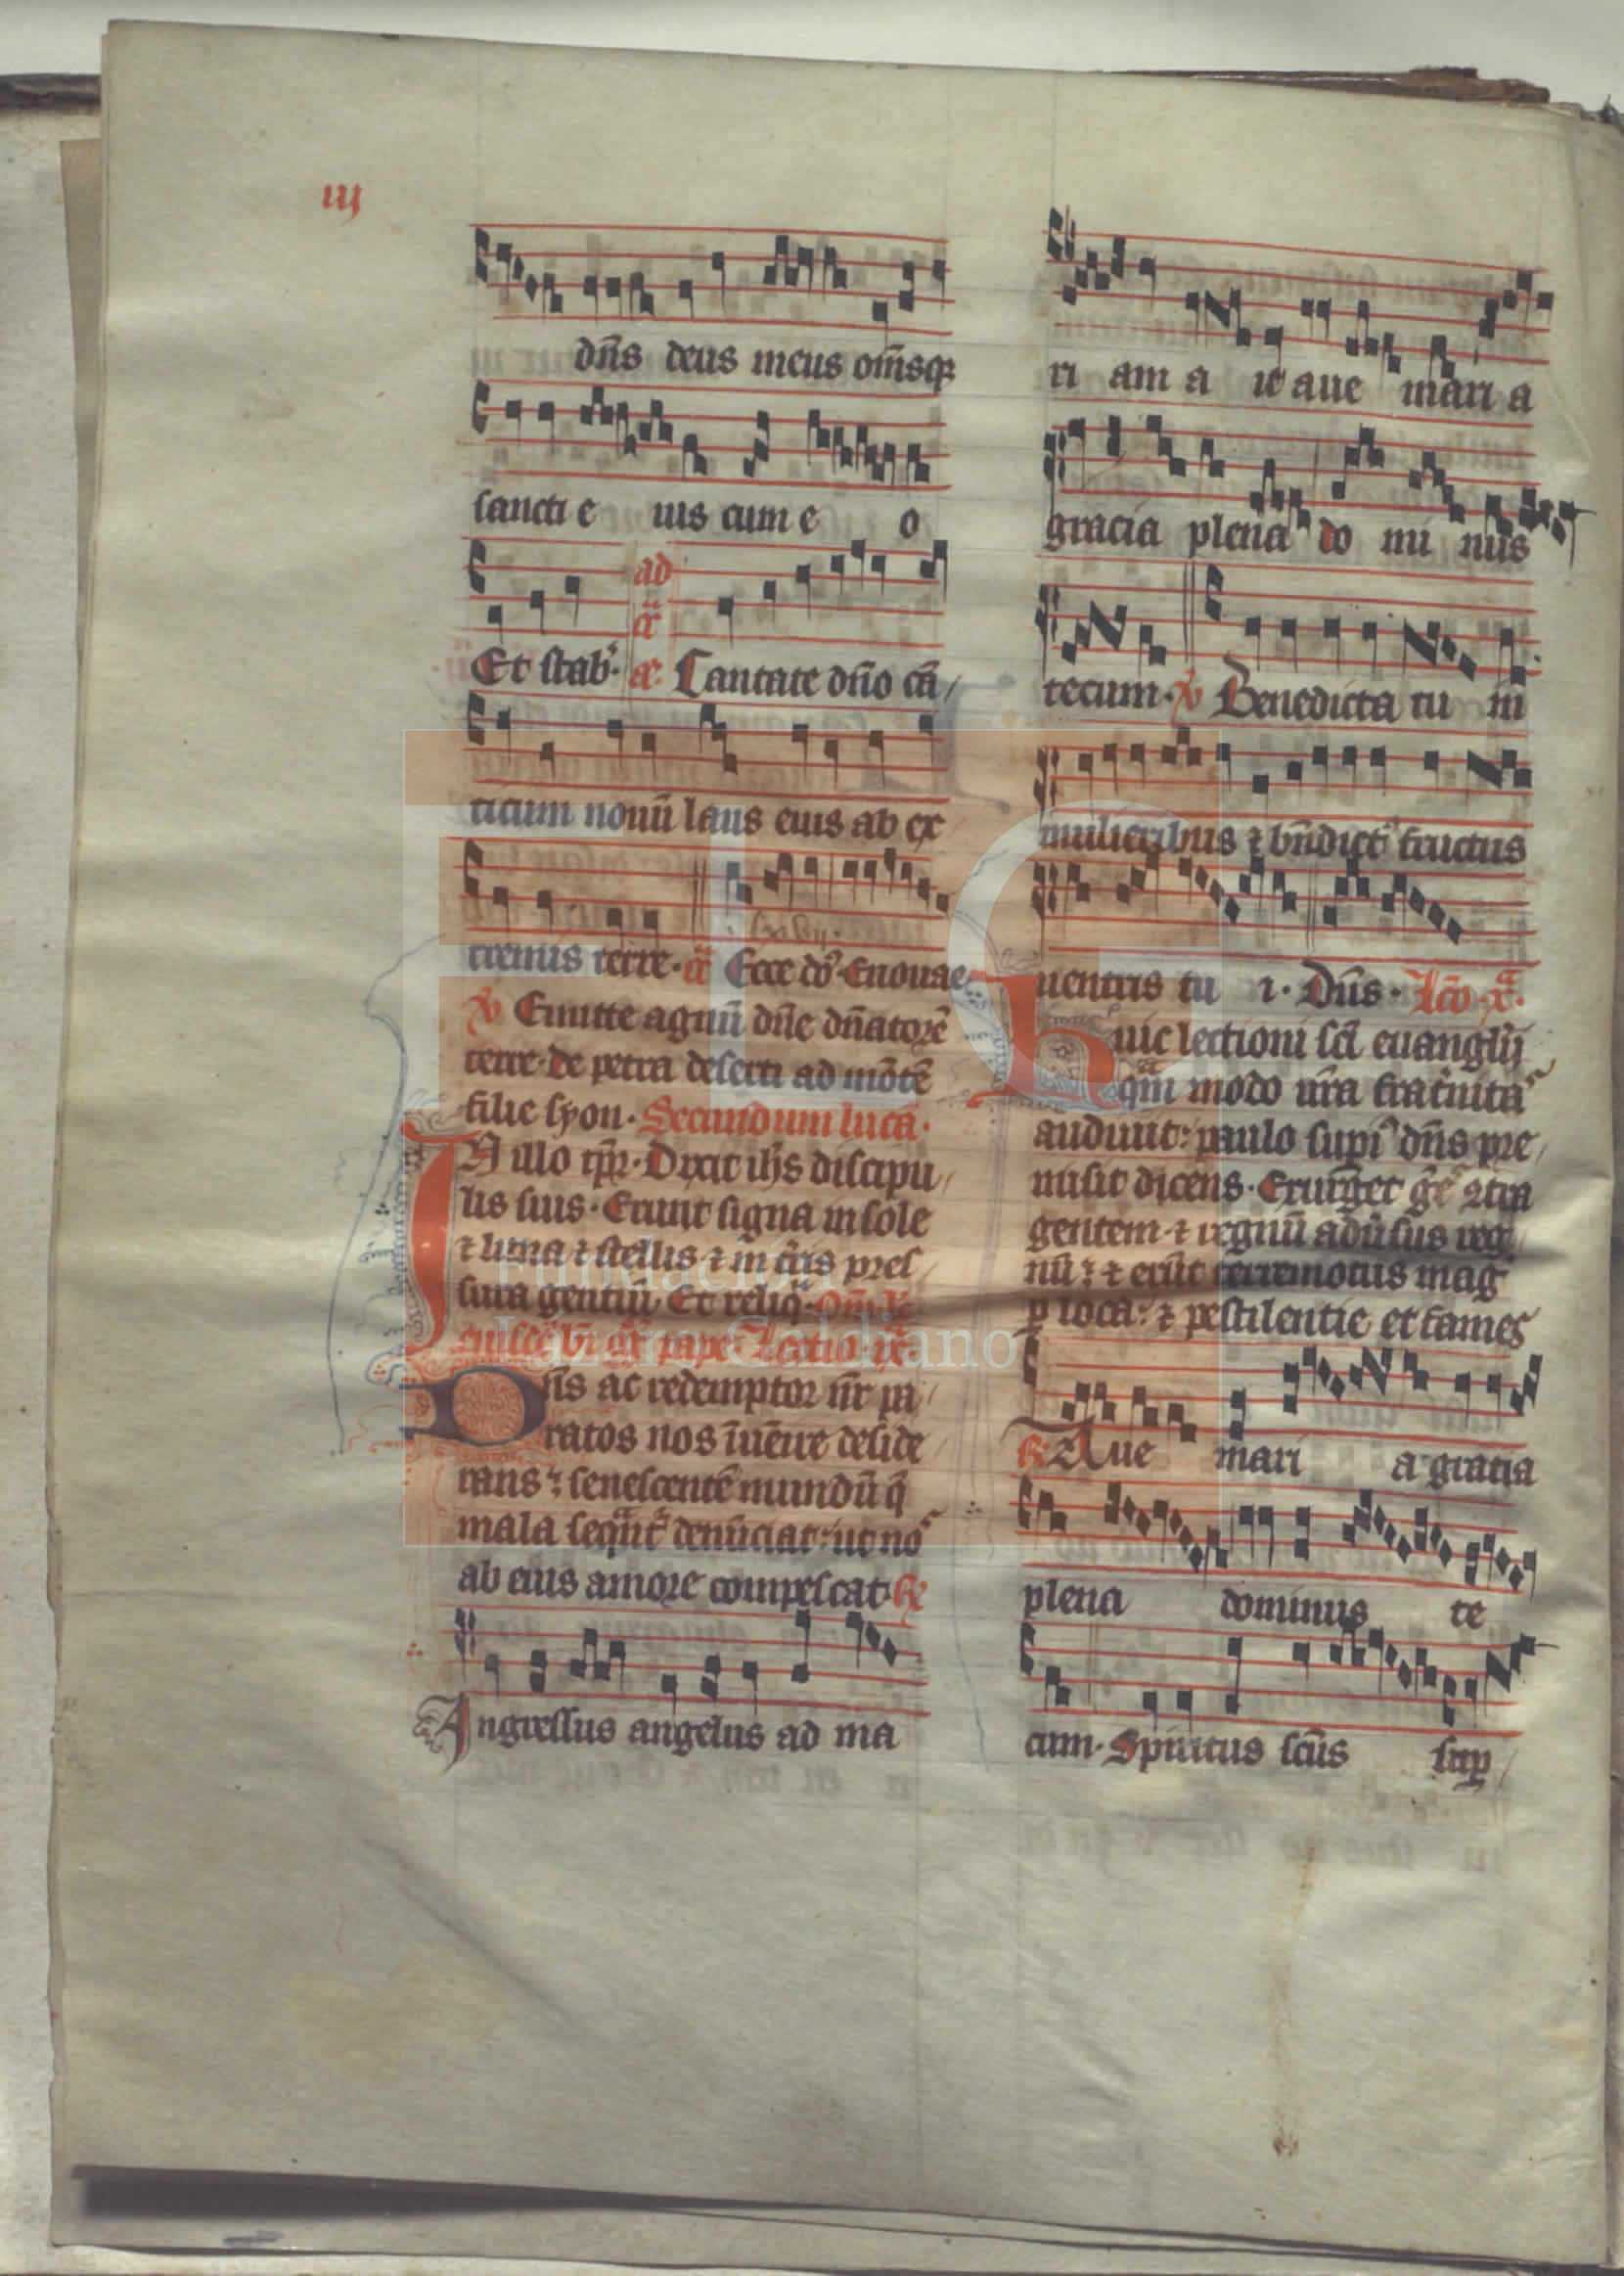 iij
dn̄s deus meus om̄sq;
sancti e ius cum e o
Et stab᾽. ad cā. a᾽. Cantate dn̄o cā/
ticum nouū laus eius ab ex
tremis terre. cā Ecce do᾽. Euouae
℣ Emitte agnū dn̄e dn̄atorē
terre. de petra deserti ad mōtē
filie syon. Secundum lucā.
IN illo tp̄r. Dixit ih̄s discipu/
lis suis. Erunt signa in sole
⁊ luna ⁊ stellis. ⁊ in t̄ris pres/
sura gentiū, Et reliq̄.
Lectio. ix.
Dn̄s ac redemptor nr̄ pa/
ratos nos īuēire deside/
rans: senescentē mundū q̄
mala seq̄nt᾽ denūciat: ut nos
ab eius amore compescat. ℟
Angressus angelus ad ma
ri am a it aue mari a
gracia plena do mi nus
tecum. ℣ Benedicta tu in
mulieribus ⁊ bn̄dict᾽ fructus
uentris tu i. Dn̄s. Lc̄o. x.ª
Huic lectioni sc̄i euanglij
q̄m modo ur̄a frat̄nitas
audiuit: paulo supi᾽ dn̄s pre/
misit dicens. Exurget gēs ꝯtra
gentem. ⁊ regnū adu᾽sus reg/
nū: ⁊ erūt terremotus mag᾽
ꝑ loca: ⁊ pestilentie et fames
℟ Aue mari a gratia
plena dominus te
cum. Spiritus sc̄us sup̱/
Fundación
Lázaro Galdiano
FLG